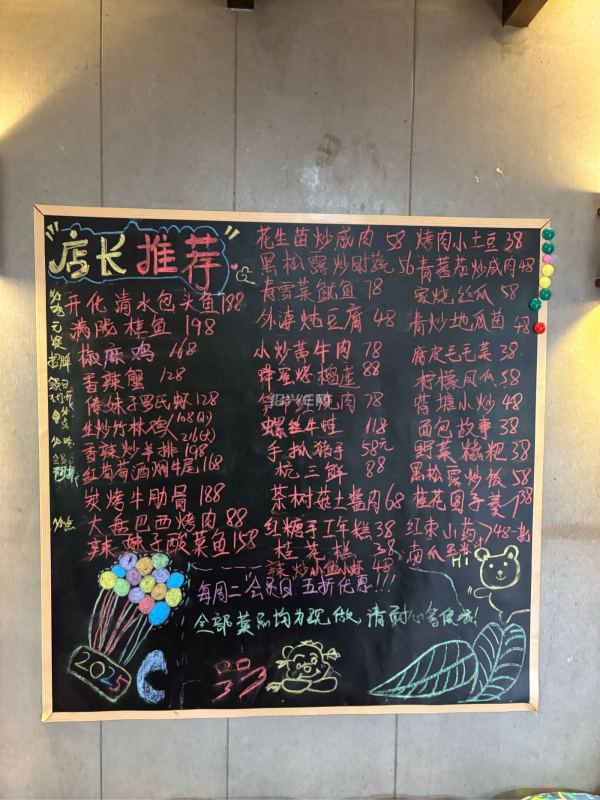 店长推荐
开化清水包头鱼 188
满院桂鱼 198
椒麻鸡 168
香辣蟹 128
傣妹子罗氏虾 128
生炒竹林鸡 168(小)
216(大)
香辣炒羊排 198
红葡萄酒焖牛尾 168
炭烤牛肋骨 188
大盘巴西烤肉 88
辣妹子酸菜鱼 158
花生苗炒咸肉 58
黑松露炒时蔬 56
青雪菜鱼 78
外婆炖豆腐 48
小炒黄牛肉 78
烧肉 78
螺丝牛蛙 118
手抓猪手 58元
杭三鲜 88
茶树菇土酱肉 68
红糖手工年糕 38
桂花糕 38
辣炒小鱼小虾 48
烤肉小土豆 38
青蕃茄炒咸肉 48
家烧丝瓜 58
青炒地瓜苗 48
腐皮毛毛菜 38
柠檬凤瓜 58
荷塘小炒 48
面包故事 38
野菜糍粑 38
黑松露炒饭 58
桂花圆子羹 138
红枣小药
南瓜玉米汁
48一扎
每周二会员日 五折优惠!!!
全部菜品均为现做 请耐心等候哦!
Hi
2025